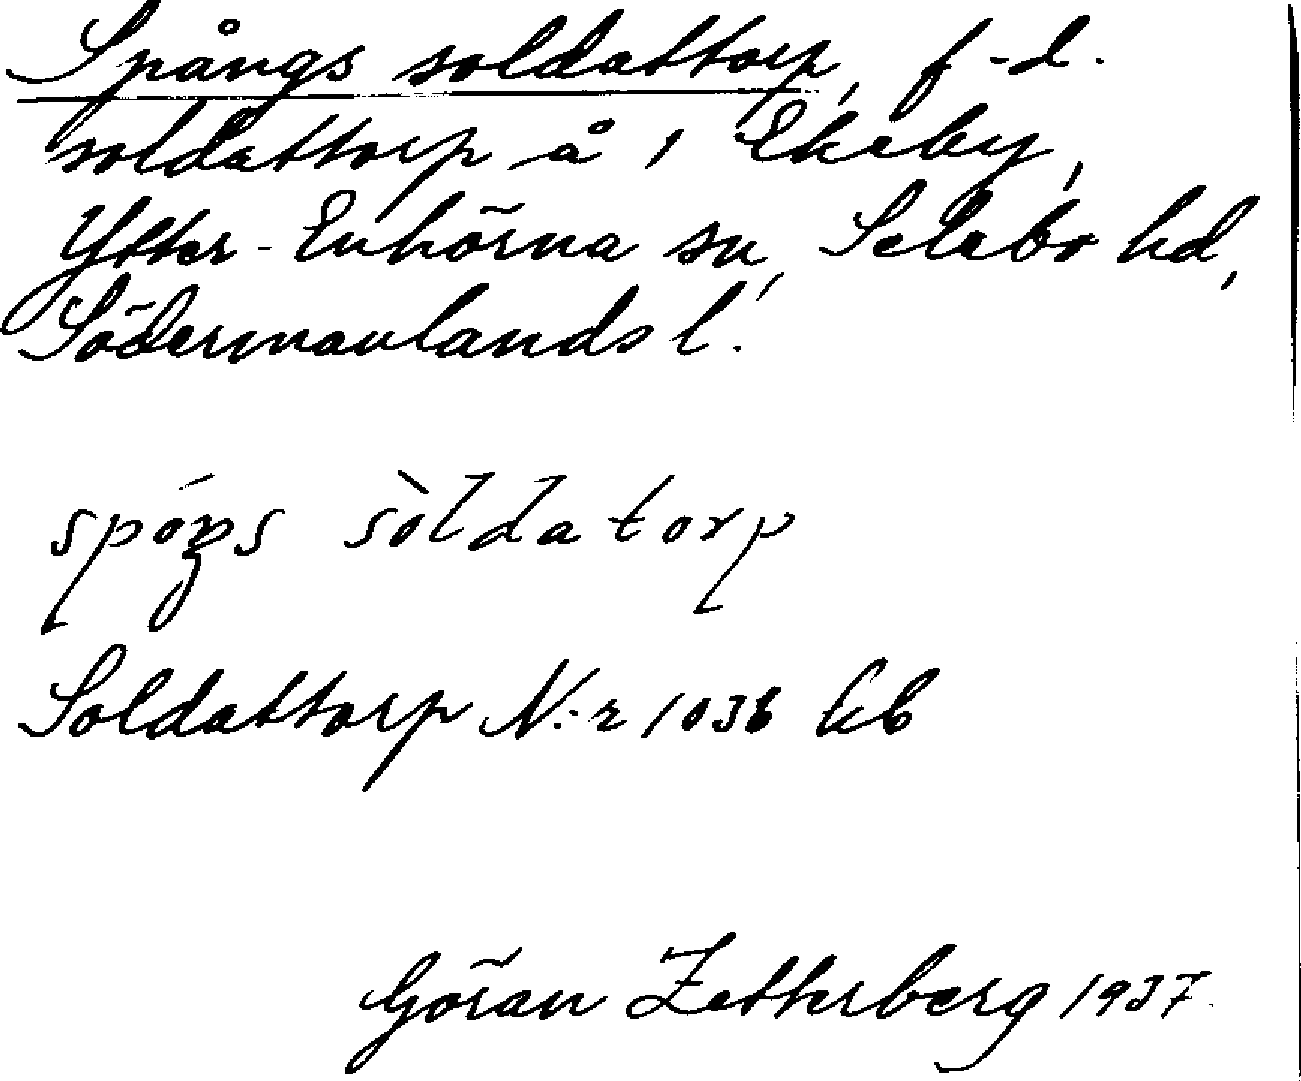 Spångs soldattorp, f-d.
soldattorp å 1 Ekeby,
Ytter-Enhörna sn, Selebo hd,
Södermanlands l.
spóŋs sòldatorp
Soldattorp N:r 1036 kb
Göran Zetterberg 1937.